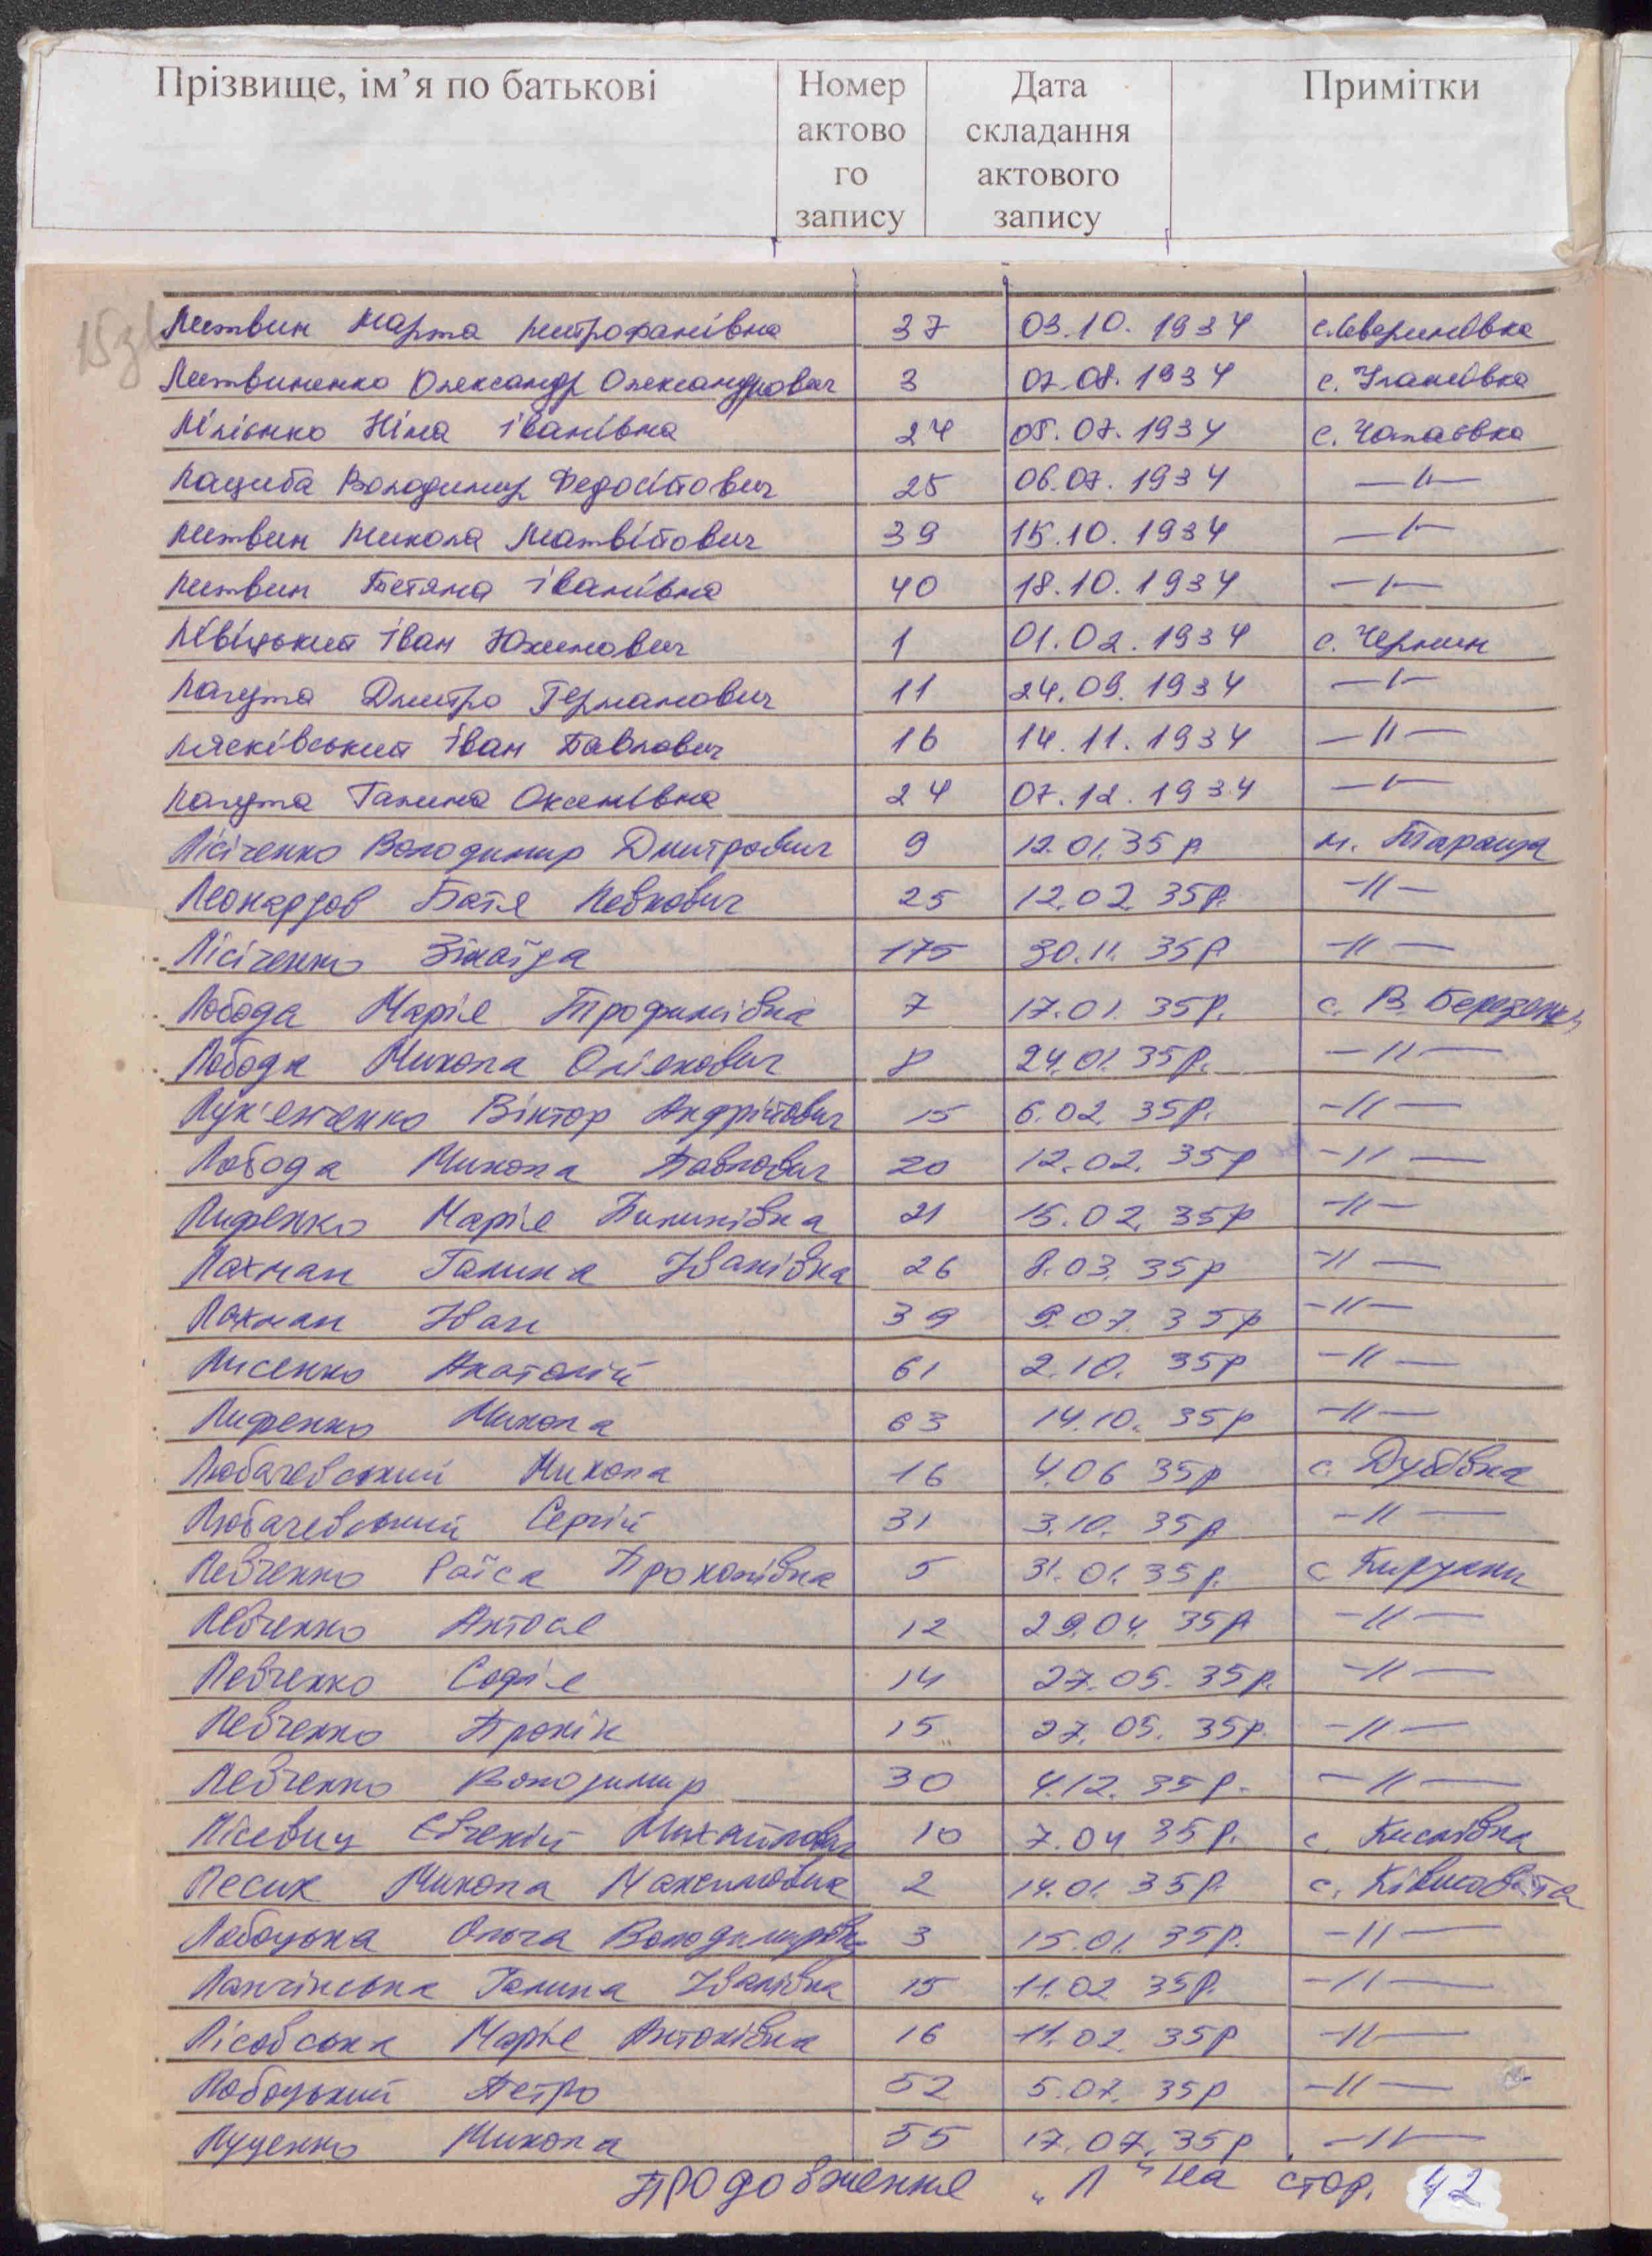 Прізвище, ім’я по батькові Номер актово го запису Дата складання актового запису Примітки
Литвин Марта Митрофанівна 37 03.10.1934 с. Северинівка
Литвиненко Олександр Олександрович 3 07.08.1934 с. Улашівка
Лілієнко Ніна Іванівна 24 05.07.1934 с. Чапаєвка
Лациба Володимир Федосійович 25 06.07.1934 —"—
Литвин Микола Матвійович 39 15.10.1934 —"—
Литвин Тетяна Іванівна 40 18.10.1934 —"—
Лівіцький Іван Юхимович 1 01.02.1934 с. Чернин
Лагута Дмитро Германович 11 24.09.1934 —"—
Лясківський Іван Павлович 16 14.11.1934 —"—
Лагута Галина Оксенівна 24 07.12.1934 —"—
Лісіченко Володимир Дмитрович 9 12.01.35р м. Тараща
Леонардов Батя Левкович 25 12.02.35р. —"—
Лісіченко Зінаїда 175 30.11.35р —"—
Лобода Марія Трофимівна 7 17.01.35р. с. В. Березянка
Лобода Микола Оліянович 8 24.01.35р. —"—
Лук'янченко Віктор Андрійович 15 6.02.35р. —"—
Лобода Микола Павлович 20 12.02.35р —"—
Лиренко Марія Пилипівна 21 15.02.35р —"—
Лахман Галина Іванівна 26 8.03.35р —"—
Лахман Іван 39 9.07.35р —"—
Лисенко Анатолій 61 2.10.35р —"—
Лиренко Микола 63 14.10.35р —"—
Любачевський Микола 16 4.06 35р с. Дубівка
Любачевський Сергій 31 3.10.35р —"—
Левченко Раїса Прокопівна 5 31.01.35р. с Кирдани
Левченко Антося 12 29.04.35р —"—
Левченко Софія 14 27.05.35р. —"—
Левченко Прокіп 15 27.05.35р. —"—
Левченко Володимир 30 4.12.35р. —"—
Лісевич Євгеній Михайлович 10 7.04 35р. с. Кислівка
Лесик Микола Максимович 2 14.01.35р. с. Ківшовата
Лобоцька Ольга Володимирівна 3 15.01.35р. —"—
Лапчінська Галина Іванівна 15 11.02 35р. —"—
Лісовська Марія Антонівна 16 11.02.35р —"—
Лобоцький Петро 52 5.07.35р —"—
Луценко Микола 55 17.07.35р —"—
продовження „Л" на стор. 42